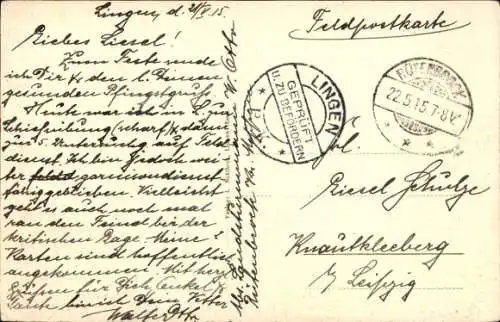 Lingen, d. 21/V. 15.
Liebes Liesel!
Zum Feste sende
ich Dir & den l. Deinen
gesunden Pfingstgruß.
Heute war ich in L. zur
Schießübung (scharf) & dann
zur 5. Untersuchg auf Feld
dienst. Ich bin jedoch wei
ter garnisondienst
fähig geblieben. Vielleicht
geht's auch noch mal
ran den Feind bei der
kritischen Lage. Meine
Karten sind hoffentlich
angekommen. Mit herz
Grüßen für Dich, Onkel &
Tante bin ich Dein Vetter
Walter Otto
W. Otto
Feldpostkarte
LINGEN
GEPRÜFT
U. ZU BEFÖRDERN
P.K.
RÜTENBROCK
22.5.15.7-8V.
Frl.
Liesel Schulze
Knautkleeberg
b/ Leipzig